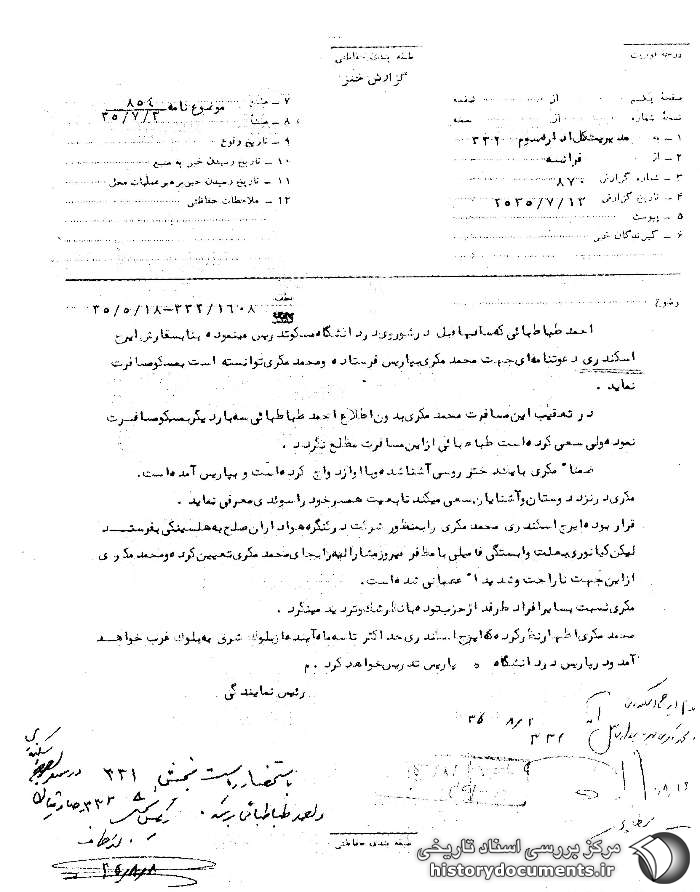 طبقه بندی حفاظتی
گزارش خبر
صفحه یکم از صفحه
نسخه شماره از نسخه
۱ ـ به مدیریتکل اداره سوم ۳۳۲
۲ ـ از فرانسه
۳ ـ شماره گزارش ۸۷۰
۴ ـ تاریخ گزارش ۲۵۳۵/۷/۱۲
۵ ـ پیوست
۶ ـ گیرندگان خبر
۷ ـ موضوع نامه ۸۵۴
۳۵/۷/۳
۸ ـ منشأ
۹ ـ تاریخ وقوع
۱۰ ـ تاریخ رسیدن خبر به منبع
۱۱ ـ تاریخ رسیدن خبر به رهبر عملیات محل
۱۲ ـ ملاحظات حفاظتی
موضوع
عطف ۳۳۲/۱۶۰۸-۳۵/۵/۱۸
احمد طباطبائی که سالها قبل در شوروی در دانشگاه مسکو تدریس مینموده بنا بسفارش ایرج
اسکندری دعوتنامه‌ای جهت محمد مکری بپاریس فرستاده و محمد مکری توانسته است بمسکو مسافرت
نماید .
در تعقیب این مسافرت محمد مکری بدون اطلاع احمد طباطبائی سه بار دیگر بمسکو مسافرت
نموده ولی سعی کرده است طباطبائی از این مسافرت مطلع نگردد .
ضمناً مکری با یکدختر روسی آشنا شده و با او ازدواج کرده است و بپاریس آمده است .
مکری در نزد دوستان و آشنایان سعی میکند تابعیت همسر خود را سوئدی معرفی نماید .
قرار بوده ایرج اسکندری محمد مکری را بمنظور شرکت در کنگره هواداران صلح به هلسینکی بفرستد
لیکن کیانوری بعلت وابستگی فامیلی با مظفر فیروز مشارالیه را بجای محمد مکری تعیین کرده و محمد مکری
از این جهت ناراحت و شدیداً عصبانی شده است .
مکری نسبت بسایر افراد طرفدار حزب توده با نظر شک و تردید مینگرد .
محمد مکری اظهار نظر کرده که ایرج اسکندری حداکثر تا سه ماه آینده از بلوک شرق به بلوک غرب خواهد
آمد و در پاریس در دانشگاه پاریس تدریس خواهد کرد . م
رئیس نمایندگی
۳۵/۸/۲
۳۳۲
باستحضار ریاست بخش ۳۳۱
طباطبائی برسد .
۳۵/۸/۸
طبقه بندی حفاظتی
مرکز بررسی اسناد تاریخی
historydocuments.ir